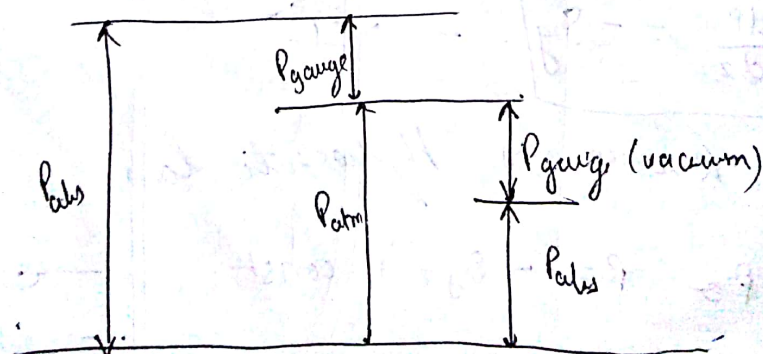 Pgauge
Pabs
Patm
Pgauge (vacuum)
Pabs